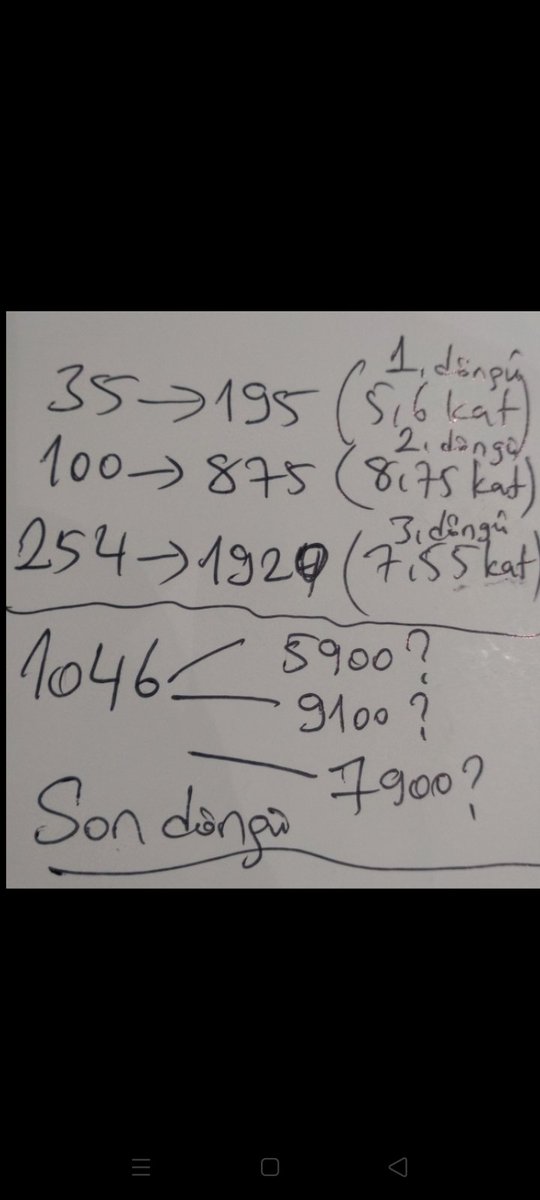 35→195 (5,6 kat) 1. döngü
100→875 (8,75 kat) 2. döngü
254→1920 (7,55 kat) 3. döngü
1046 5900?
9100?
7900?
Son döngü